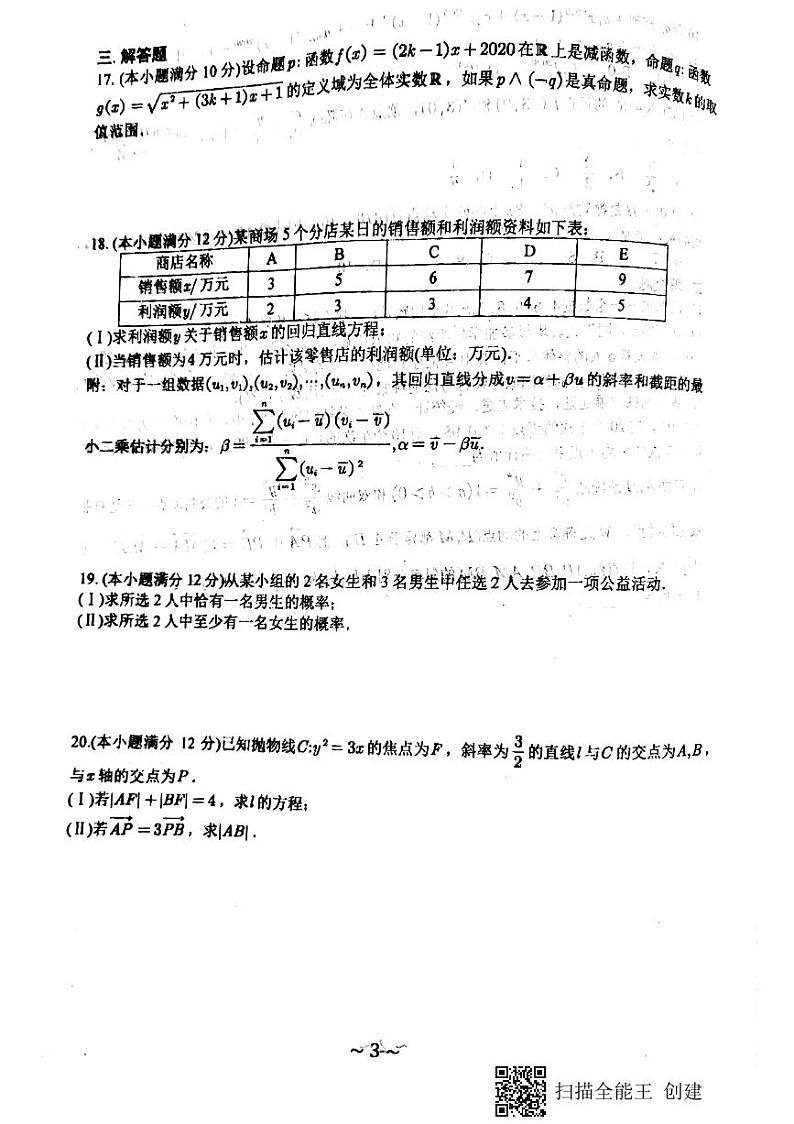 三.解答题
17.(本小题满分10分)设命题p:函数f(x)=(2k-1)x+2020在ℝ上是减函数，命题q:函数
g(x)=√(x²+(3k+1)x+1)的定义域为全体实数ℝ，如果p∧(¬q)是真命题，求实数k的取
值范围.
18.(本小题满分12分)某商场5个分店某日的销售额和利润额资料如下表:
商店名称 A B C D E
销售额x/万元 3 5 6 7 9
利润额y/万元 2 3 3 4 5
(Ⅰ)求利润额y关于销售额x的回归直线方程;
(Ⅱ)当销售额为4万元时，估计该零售店的利润额(单位：万元).
附：对于一组数据(u₁,v₁),(u₂,v₂),…,(uₙ,vₙ)，其回归直线分成v=α+βu的斜率和截距的最
小二乘估计分别为：β=∑ⁿᵢ₌₁(uᵢ-u̅)(vᵢ-v̅)/∑ⁿᵢ₌₁(uᵢ-u̅)²,α=v̅-βu̅.
19.(本小题满分12分)从某小组的2名女生和3名男生中任选2人去参加一项公益活动.
(Ⅰ)求所选2人中恰有一名男生的概率;
(Ⅱ)求所选2人中至少有一名女生的概率.
20.(本小题满分 12 分)已知抛物线C:y²=3x的焦点为F，斜率为3/2的直线l与C的交点为A,B，
与x轴的交点为P.
(Ⅰ)若|AF|+|BF|=4，求l的方程;
(Ⅱ)若AP→=3PB→，求|AB|.
~3~
扫描全能王 创建